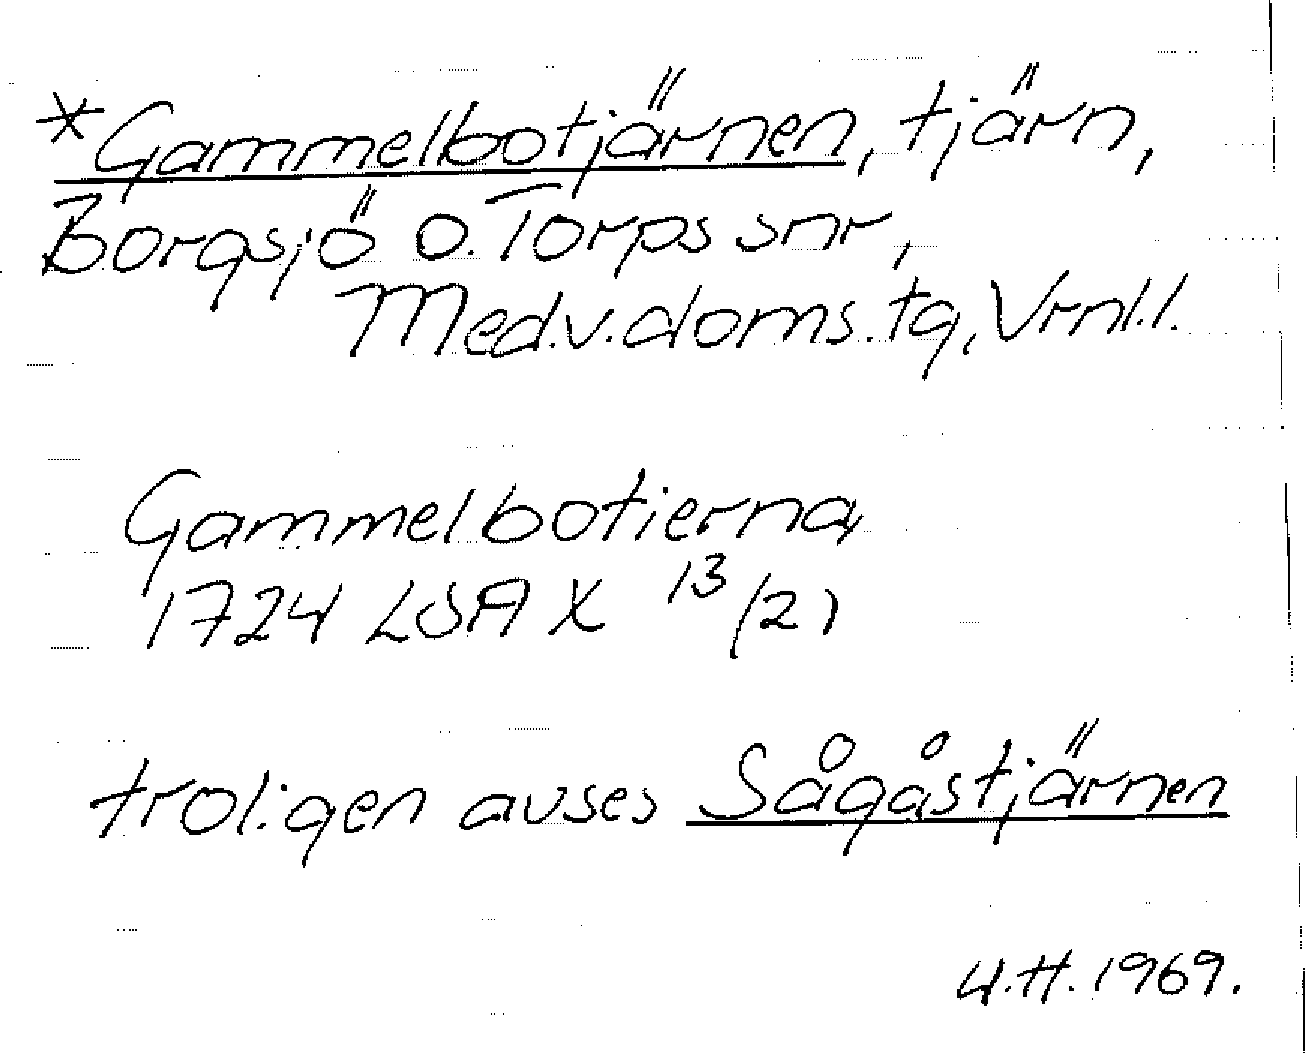 *Gammelbotjärnen, tjärn,
Borgsjö o. Torps snr,
Med.v.doms.tg, Vrnl.l.
Gammelbotierna
1724 LSA X 13/(2)
troligen avses Sågåstjärnen
4.H. 1969.